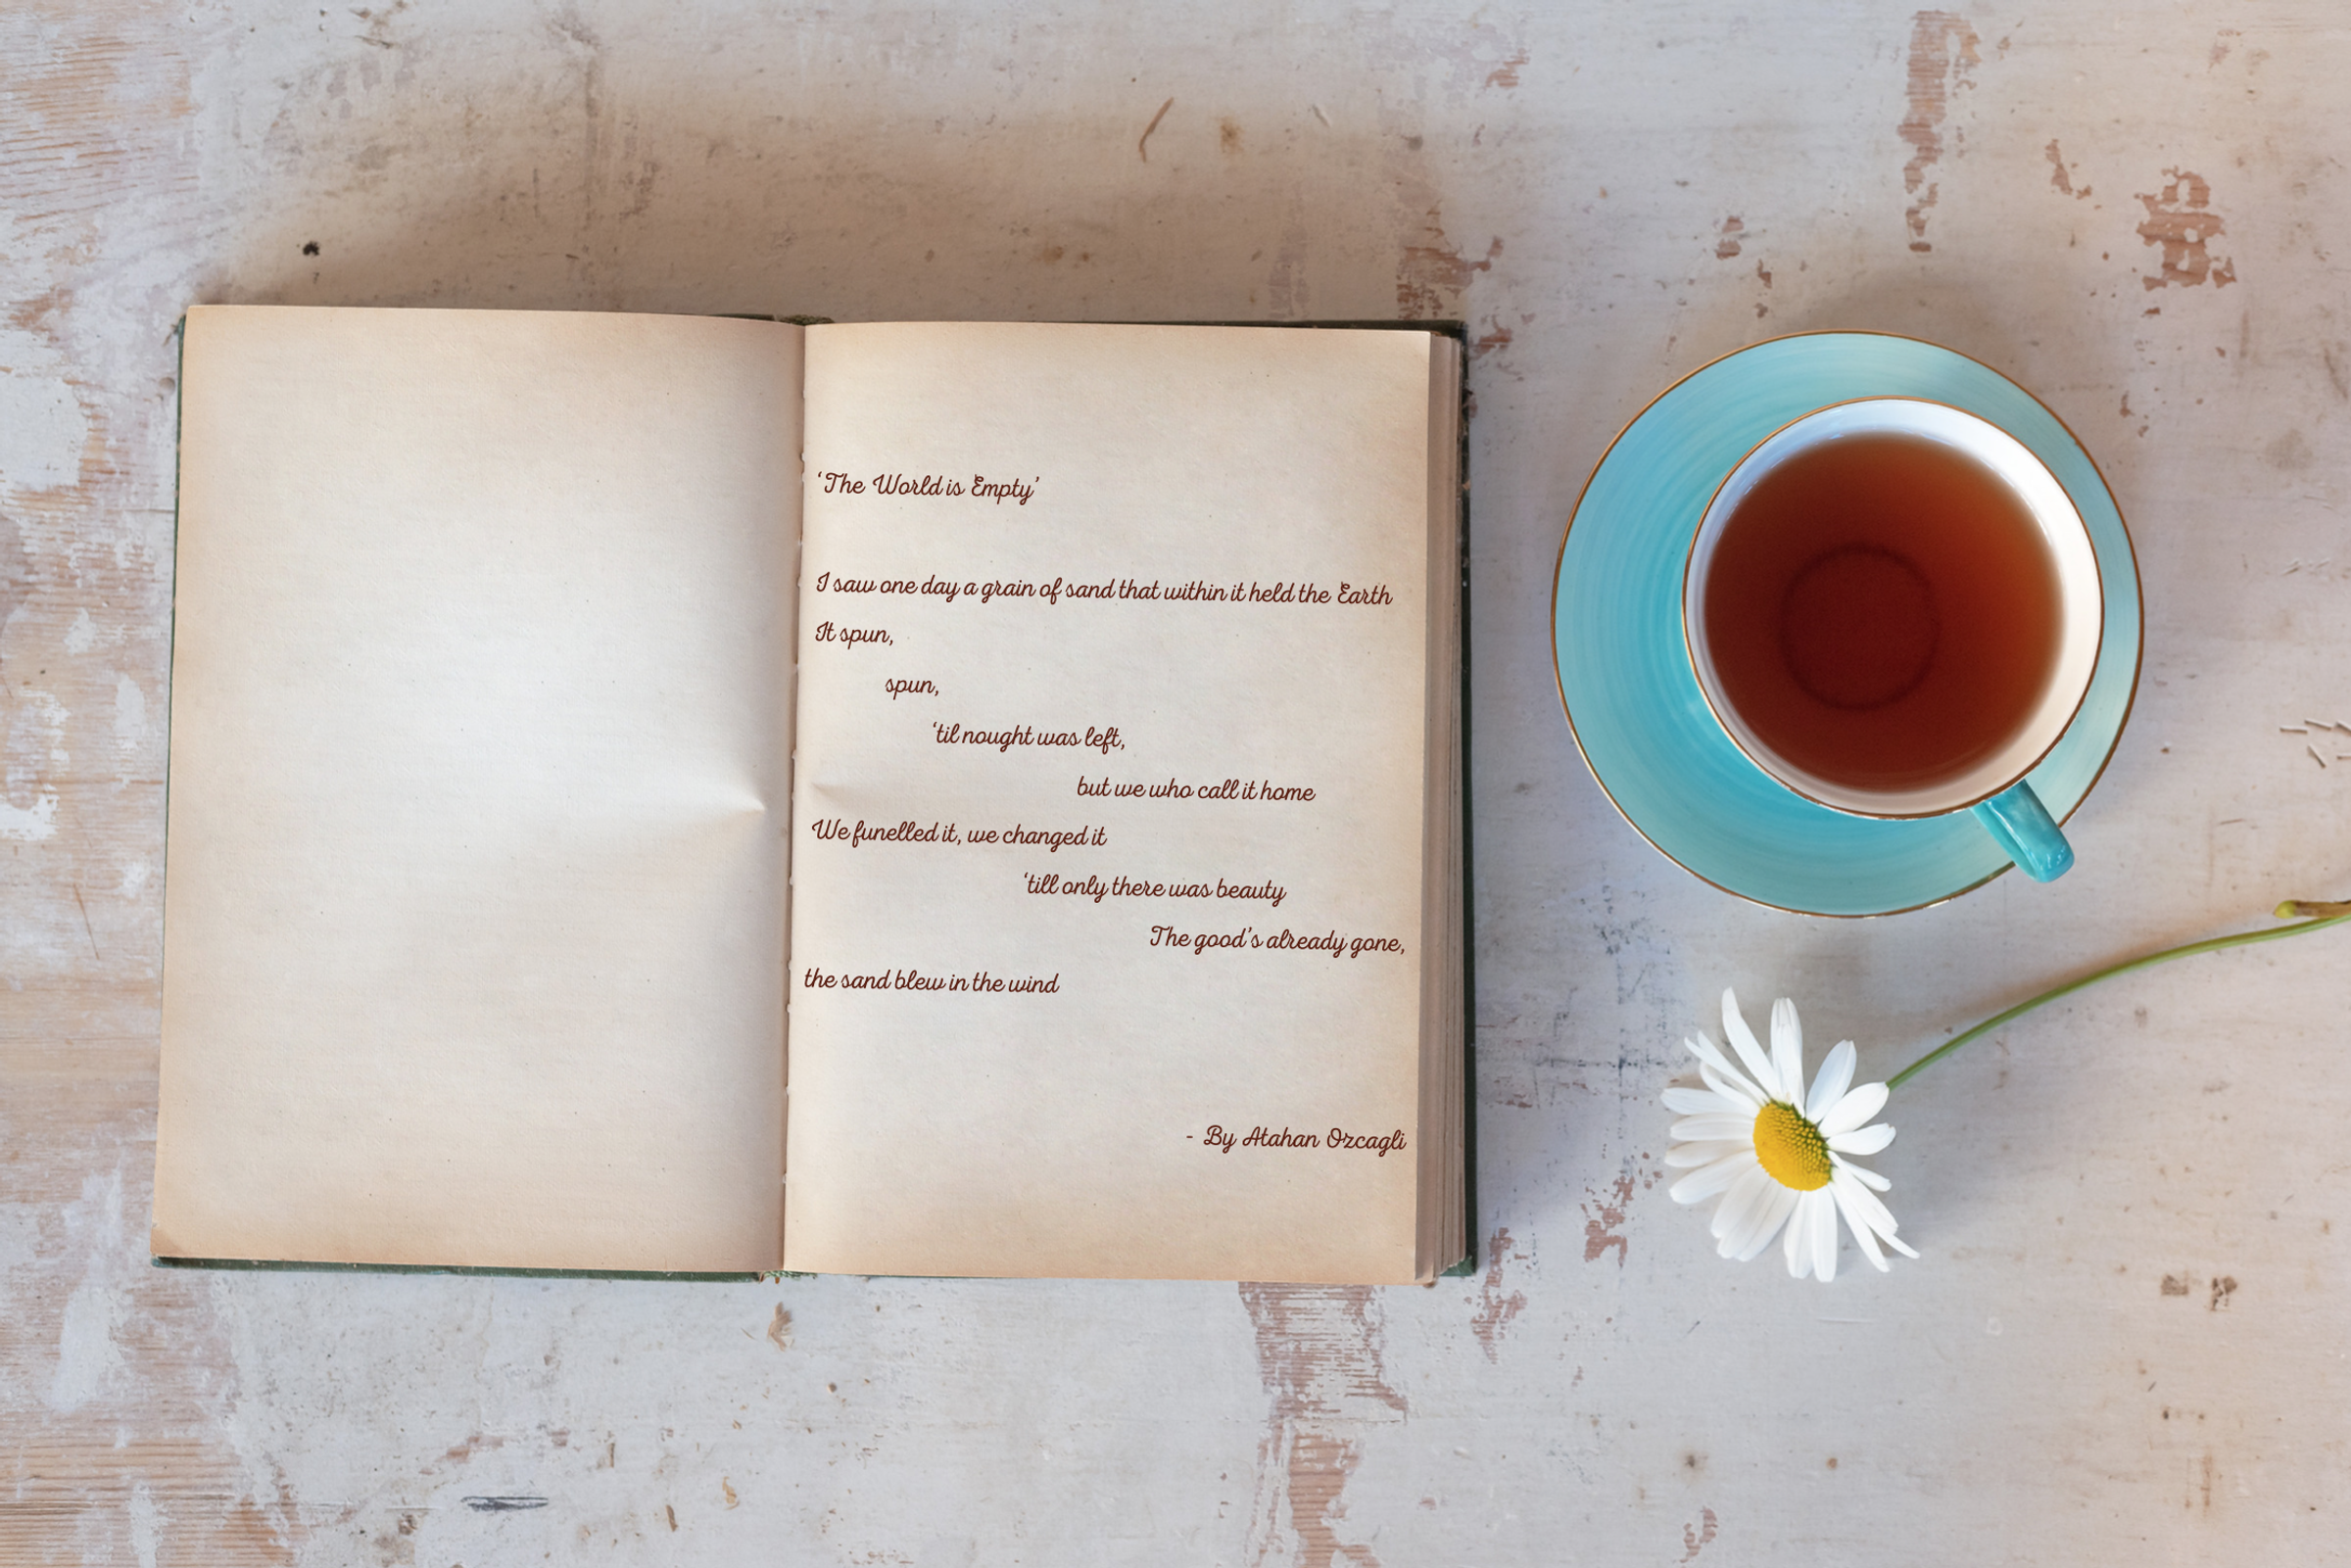 ‘The World is Empty’
I saw one day a grain of sand that within it held the Earth
It spun,
spun,
‘til nought was left,
but we who call it home
We funelled it, we changed it
‘till only there was beauty
The good’s already gone,
the sand blew in the wind
- By Atahan Ozcagli